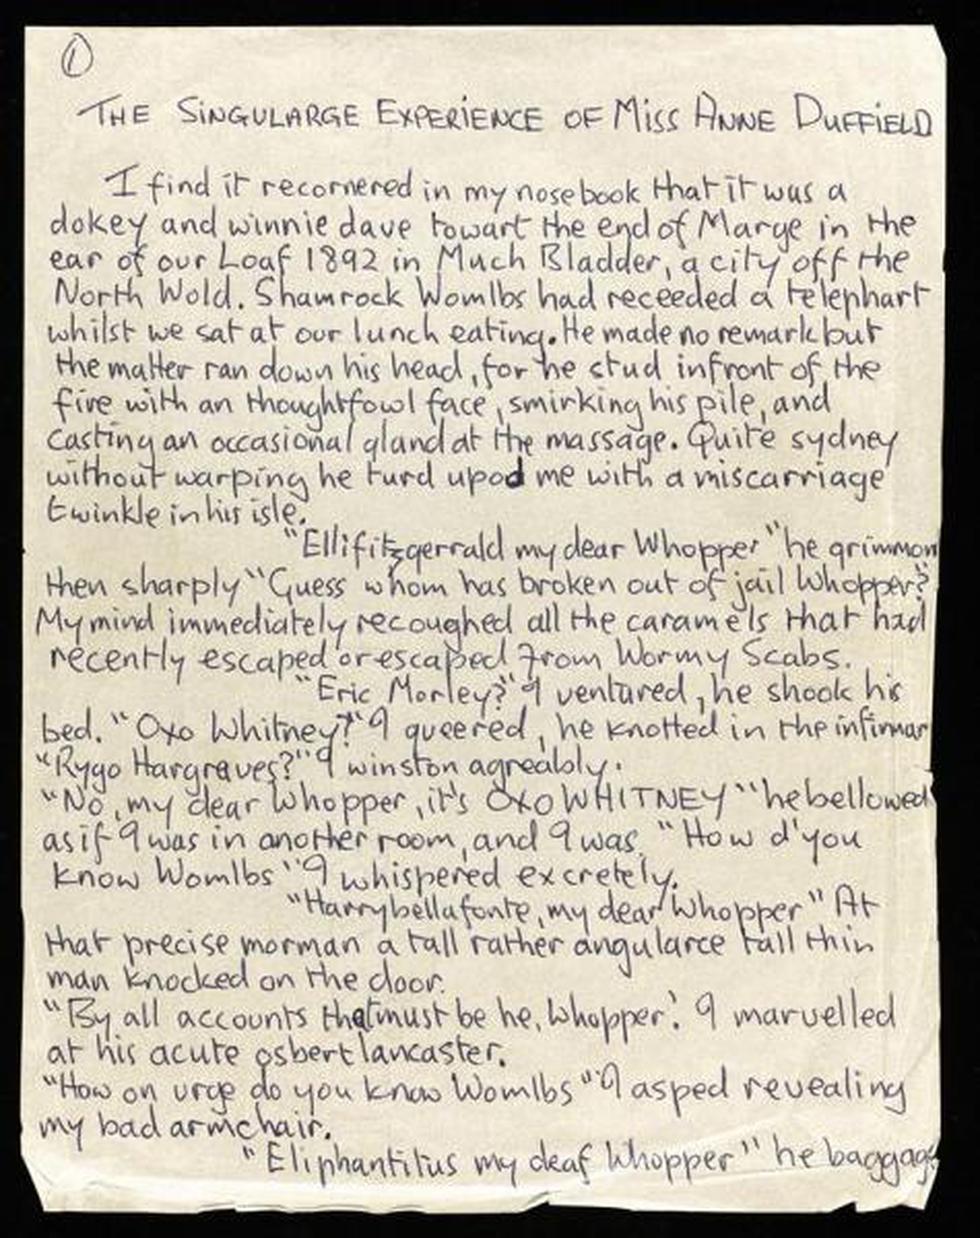 1
THE SINGULARGE EXPERIENCE OF MISS ANNE DUFFIELD
I find it recornered in my nosebook that it was a
dokey and winnie dave towart the end of Marge in the
ear of our Loaf 1892 in Much Bladder, a city off the
North Wold. Shamrock Womlbs had receeded a telephart
whilst we sat at our lunch eating. He made no remark but
the matter ran down his head, for he stud infront of the
fire with an thoughtfowl face, smirking his pile, and
casting an occasional gland at the massage. Quite sydney
without warping he turd upod me with a miscarriage
twinkle in his isle.
"Ellifitzgerrald my dear Whopper" he grimmon
then sharply "Guess whom has broken out of jail Whopper?
My mind immediately recoughed all the caramels that had
recently escaped or escaped from Wormy Scabs.
"Eric Morley?" I ventured, he shook his
bed. "Oxo Whitney?" I queered, he knotted in the infirmar
"Rygo Hargraves?" I winston agreably.
"No, my dear Whopper, it's OXO WHITNEY" he bellowed
as if I was in another room, and I was. "How d'you
know Womlbs" I whispered excretely.
"Harrybellafonte, my dear Whopper" At
that precise morman a tall rather angularce tall thin
man knocked on the door.
"By all accounts that must be he, Whopper." I marvelled
at his acute osbert lancaster.
"How on urge do you know Womlbs" I asped revealing
my bad armchair.
"Eliphantitus my deaf Whopper" he baggage